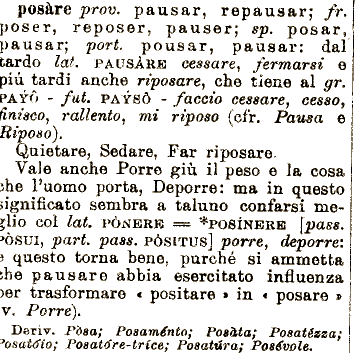 posàre prov. pausar, repausar; fr.
poser, reposer, pauser; sp. posar,
pausar; port. pousar, pausar: dal
tardo lat. PAUSÀRE cessare, fermarsi e
più tardi anche riposare, che tiene al gr.
PAYÔ - fut. PAYSÔ - faccio cessare, cesso,
finisco, rallento, mi riposo (cfr. Pausa e
Riposo).
Quietare, Sedare, Far riposare.
Vale anche Porre giù il peso e la cosa
che l'uomo porta, Deporre: ma in questo
significato sembra a taluno confarsi me-
glio col lat. PÒNERE = *POSÍNERE [pass.
PÒSUI, part. pass. PÒSITUS] porre, deporre:
e questo torna bene, purché si ammetta
che pausare abbia esercitato influenza
per trasformare « positare » in « posare »
(v. Porre).
Deriv. Pòsa; Posaménto; Posàta; Posatézza;
Posatóio; Posatóre-trice; Posatúra; Posévole.